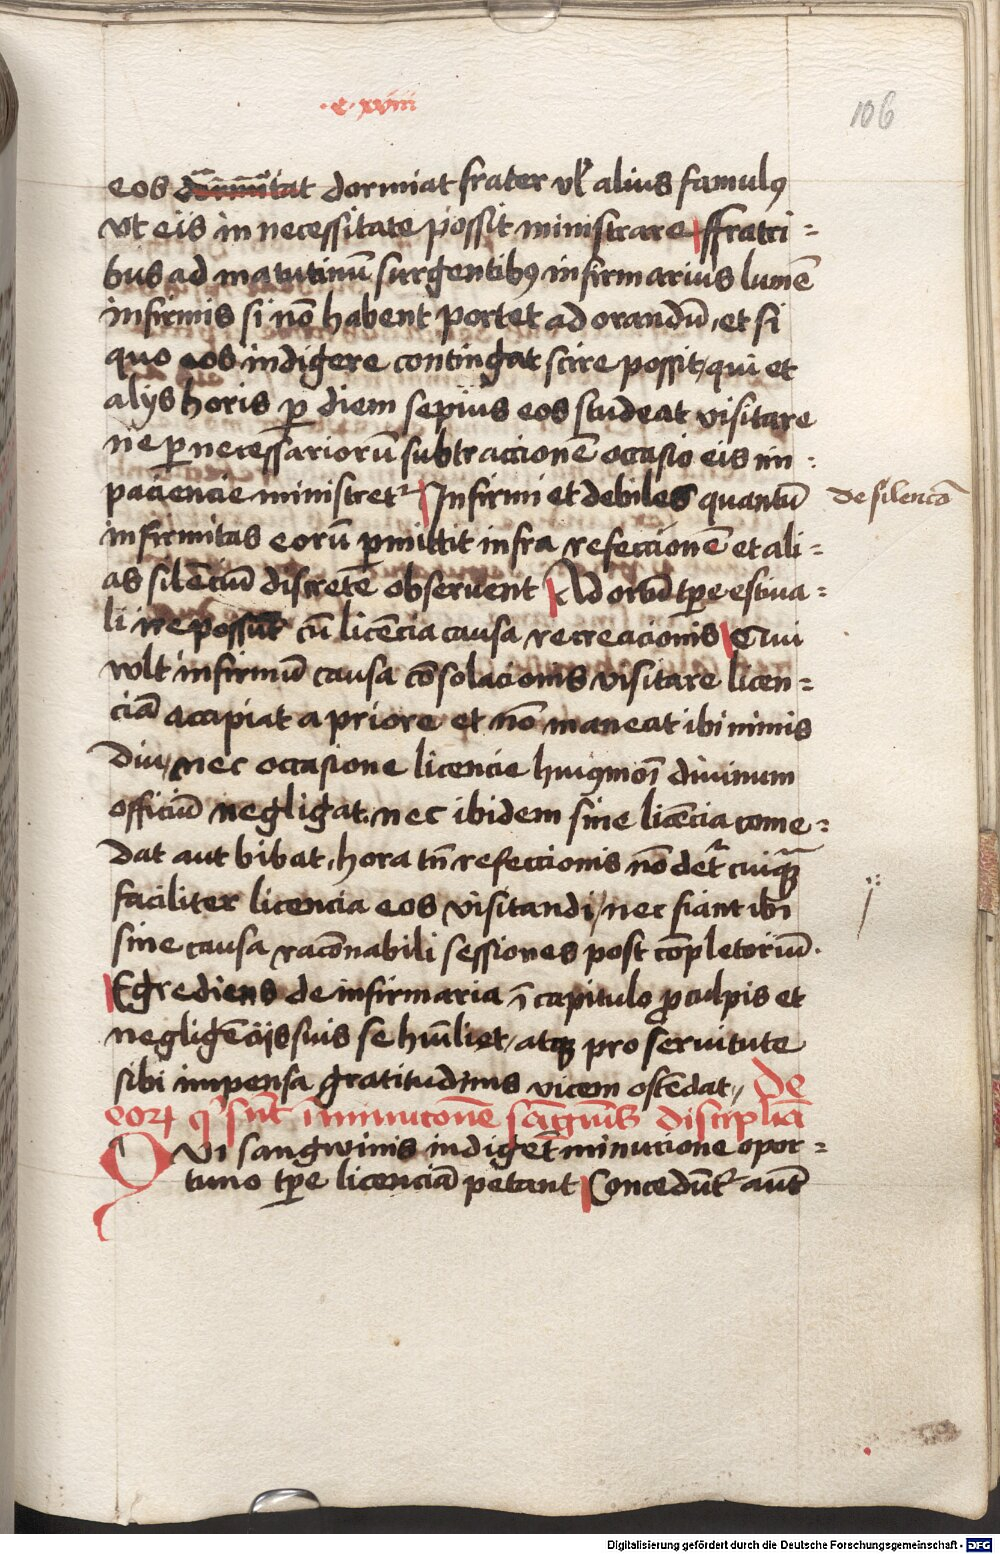 .c. xviii
106
eos dormiat frater vl' alius famulꝯ
vt eis in necessitate possit ministrare ffratri=
bus ad matutinū surgentibꝯ infirmarius lumē
infirmis si nō habent portet ad orandū, et si
quo eos indigere contingat scire possit, qui et
alijs horis ꝑ diem sepius eos studeat visitare
ne ꝑ necessariorū subtraccionē occasio eis im=
paciencie ministret᷑ Infirmi et debiles quantū
de silencio
infirmitas eorū ꝑmittit infra refeccionē et ali=
as silēciū discrete obseruent Ad ortū tꝑe estiua=
li ire possūt cū licēcia causa recreacionis Qui
wlt infirmū causa cōsolacionis visitare licen=
ciā accipiat a priore et nō maneat ibi nimis
diu, nec occasione licencie huiꝯmōi diuinum
officiū negligat, nec ibidem sine licēcia come=
dat aut bibat, hora tn̄ refeccionis nō det᷑ cuiqꝫ
faciliter licencia eos visitandi, nec fiant ibi
sine causa racōnabili sessiones post cōpletoriū.
Egrediens de infirmaria ī capitulo ꝓ culpis et
negligēciis suis se hūiliet, atqꝫ pro seruitute
sibi impensa gratitudinis vicem ostēdat, de
eorꝝ qͥ sūt ī minucōne sāguīs disciplīa
QVi sangwinis indiget minucione opor=
tuno tꝑe licenciā petant Concedūt᷑ autē
Digitalisierung gefördert durch die Deutsche Forschungsgemeinschaft - DFG